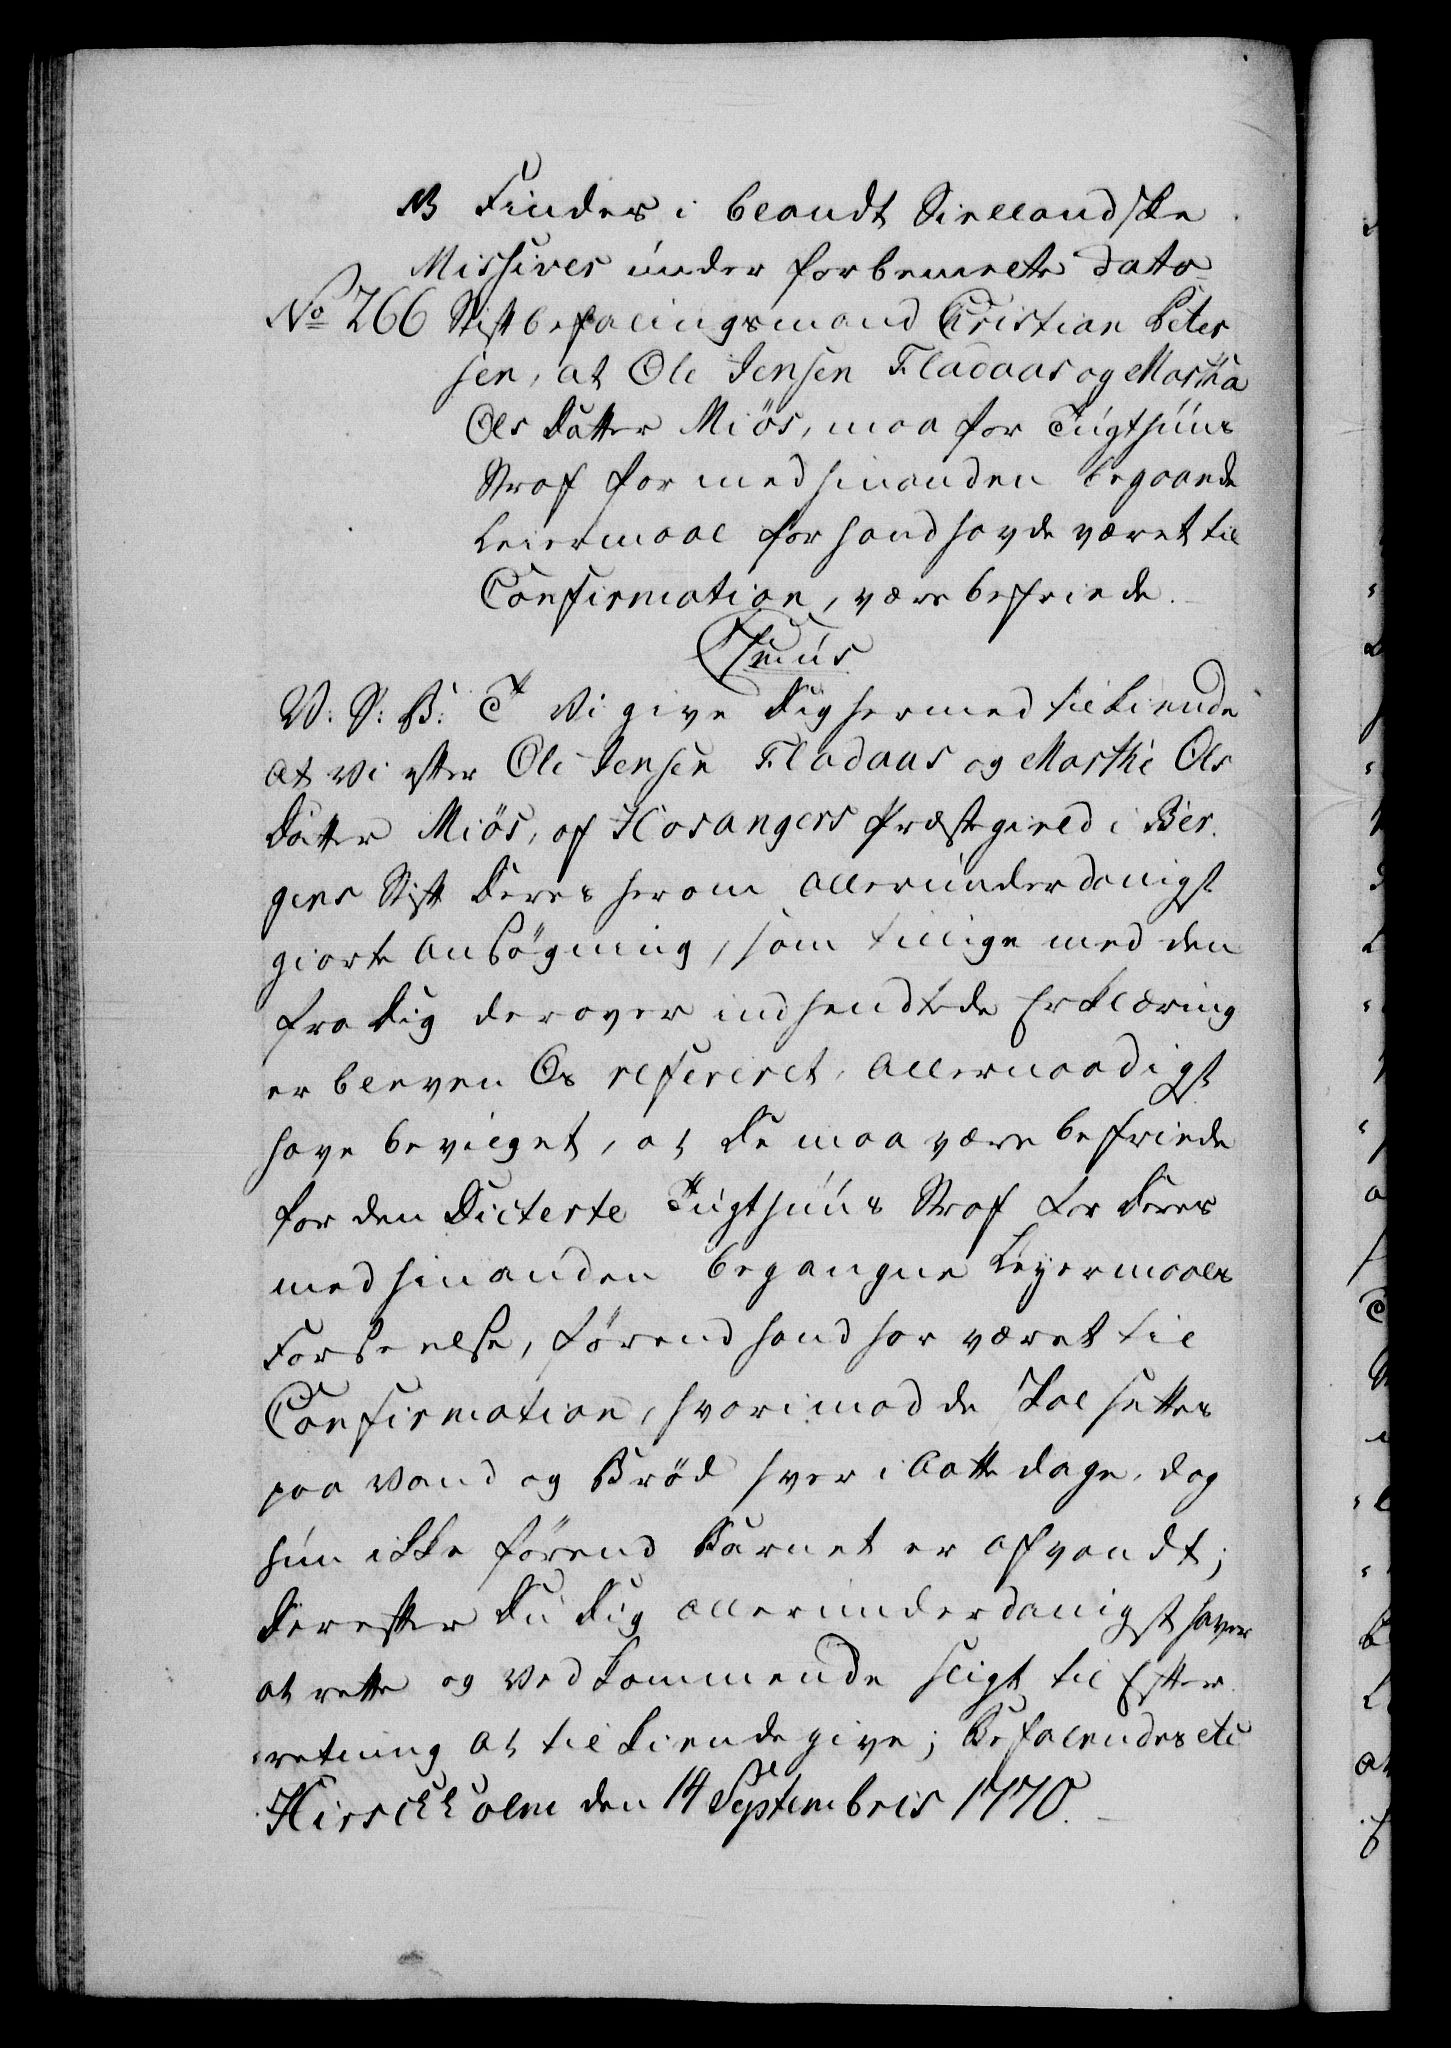 NB Findes i blandt Siellandske
Missives under forbemelte dato
No 266 Stiftbefalingsmand Cristian Peter
sen, at Ole Jensen Fladaas og Martha
Ols Datter Miös, maa for Tugthuus
Straf for med hinanden begaaende
Leiermaal for hand havde været til
Confirmation, være befriede.
V: S: B: T Vi give Dig hermed tilkiende
at Vi efter Ole Jensen Fladaas og Marthe Ols
Datter Miös, af Hosangers Præstegield i Ber
gens Stift Deres herom allerunderdanigst
giorte Ansögning, som tillige med den
fra Dig derover indsendtede Erklæring
er bleven Os refereret, allernaadigst
have bevilget, at De maa være befriede
for den Dicterte Tugthuus Straf for Deres
med hinanden begangne Leyermaals
Forseelse, förend hand har været til
Confirmation, hvorimod de skal settes
paa Vand og Bröd hver i Aatte dage, dog
hun ikke förend Barnet er afvandt;
Derefter Du Dig allerunderdanigst haver
at rette og Vedkommende sligt til Efter
retning at tilkiendegive; Befalendes etc
Hirschholm den 14 Septembris 1770.